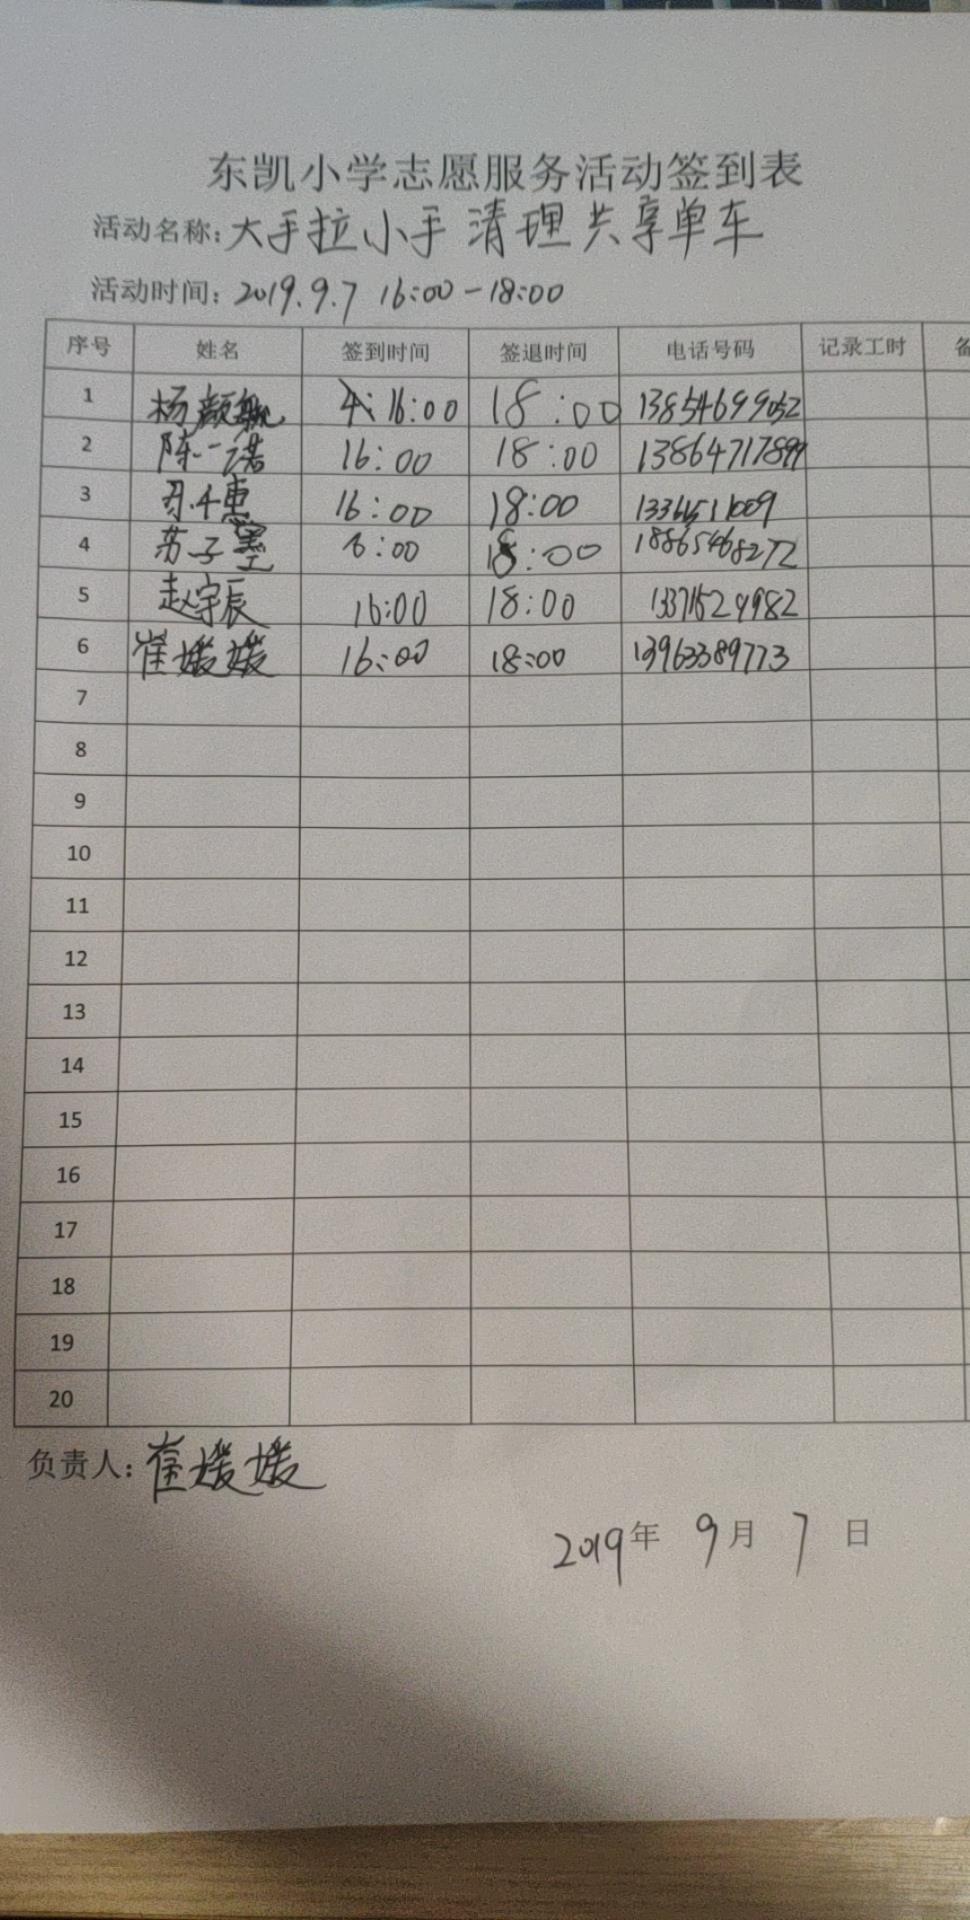 东凯小学志愿服务活动签到表
活动名称：大手拉小手 清理共享单车
活动时间：2019.9.7 16:00-18:00
序号 姓名 签到时间 签退时间 电话号码 记录工时
1 杨颜 16:00 18:00 13854699052
2 陈一诺 16:00 18:00
3 16:00 18:00
4 苏子墨 6:00 18:00 18865468272
5 赵宇辰 16:00 18:00 13371529982
6 崔媛媛 16:00 18:00 13963389773
7
8
9
10
11
12
13
14
15
16
17
18
19
20
负责人：崔媛媛
2019年 9月 7 日